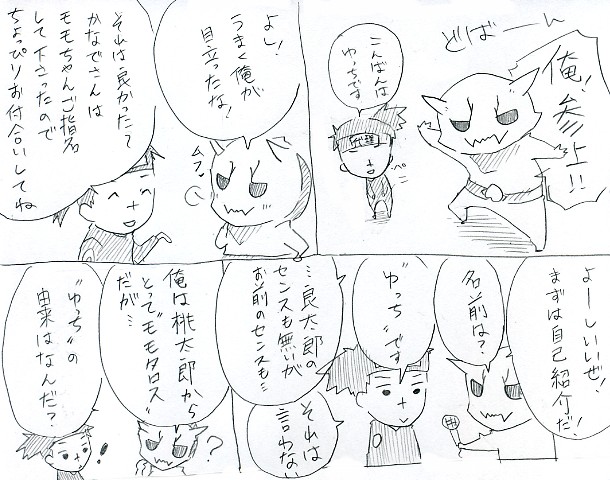 どばーーん
俺、参上!!
こんばんは
ゆっちです
代理
ペコ
よし!
うまく俺が
目立ったな!
ムフッ
それは良かった!
かなでさんは
モモちゃんご指名
して下さったので
ちょっぴりお付合いしてね
よーしいいぜ!
まずは自己紹介だ!
名前は?
"ゆっち"です
…良太郎の
センスも無いが
お前のセンスも…
それは
言わない
俺は桃太郎から
とって"モモタロス"
だが…
?
"ゆっち"の
由来はなんだ?
!